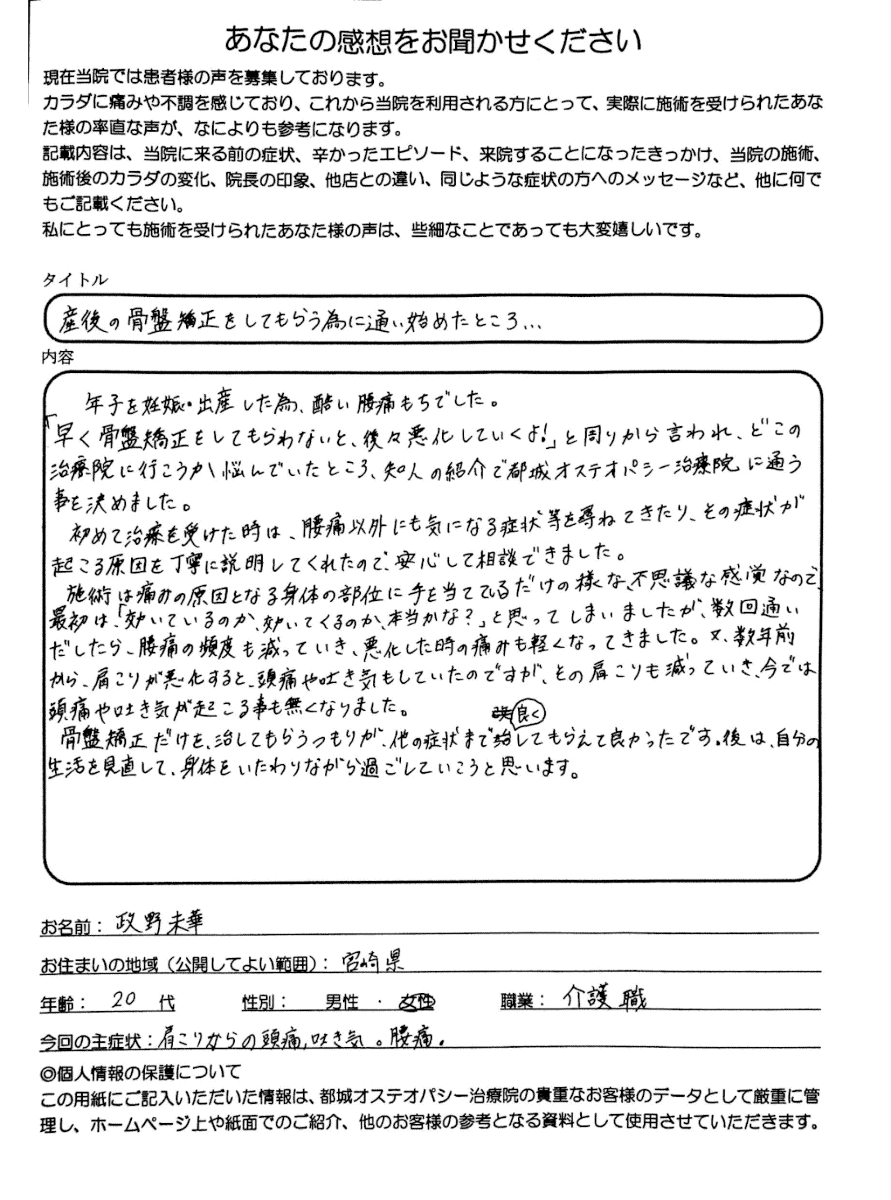 あなたの感想をお聞かせください
現在当院では患者様の声を募集しております。
カラダに痛みや不調を感じており、これから当院を利用される方にとって、実際に施術を受けられたあな
た様の率直な声が、なによりも参考になります。
記載内容は、当院に来る前の症状、辛かったエピソード、来院することになったきっかけ、当院の施術、
施術後のカラダの変化、院長の印象、他店との違い、同じような症状の方へのメッセージなど、他に何で
もご記載ください。
私にとっても施術を受けられたあなた様の声は、些細なことであっても大変嬉しいです。
タイトル
産後の骨盤矯正をしてもらう為に通い始めたところ...
内容
年子を妊娠・出産した為、酷い腰痛もちでした。
「早く骨盤矯正をしてもらわないと、後々悪化していくよ!」と周りから言われ、どこの
治療院に行こうか悩んでいたところ、知人の紹介で都城オステオパシー治療院に通う
事を決めました。
初めて治療を受けた時は、腰痛以外にも気になる症状等を尋ねてきたり、その症状が
起こる原因を丁寧に説明してくれたので、安心して相談できました。
施術は痛みの原因となる身体の部位に手を当てているだけの様な、不思議な感覚なので、
最初は、「効いているのか、効いてくるのか、本当かな?」と思ってしまいましたが、数回通い
だしたら、腰痛の頻度も減っていき、悪化した時の痛みも軽くなってきました。又、数年前
から、肩こりが悪化すると、頭痛や吐き気もしていたのですが、その肩こりも減っていき、今では
頭痛や吐き気が起こる事も無くなりました。
良く
骨盤矯正だけを、治してもらうつもりが、他の症状までしてもらえて良かったです。後は、自分の
生活を見直して、身体をいたわりながら過ごしていこうと思います。
お名前: 政野未華
お住まいの地域(公開してよい範囲): 宮崎県
年齢: 20 代 性別: 男性 ・ 女性 職業: 介護職
今回の主症状: 肩こりからの頭痛,吐き気。腰痛。
◎個人情報の保護について
この用紙にご記入いただいた情報は、都城オステオパシー治療院の貴重なお客様のデータとして厳重に管
理し、ホームページ上や紙面でのご紹介、他のお客様の参考となる資料として使用させていただきます。